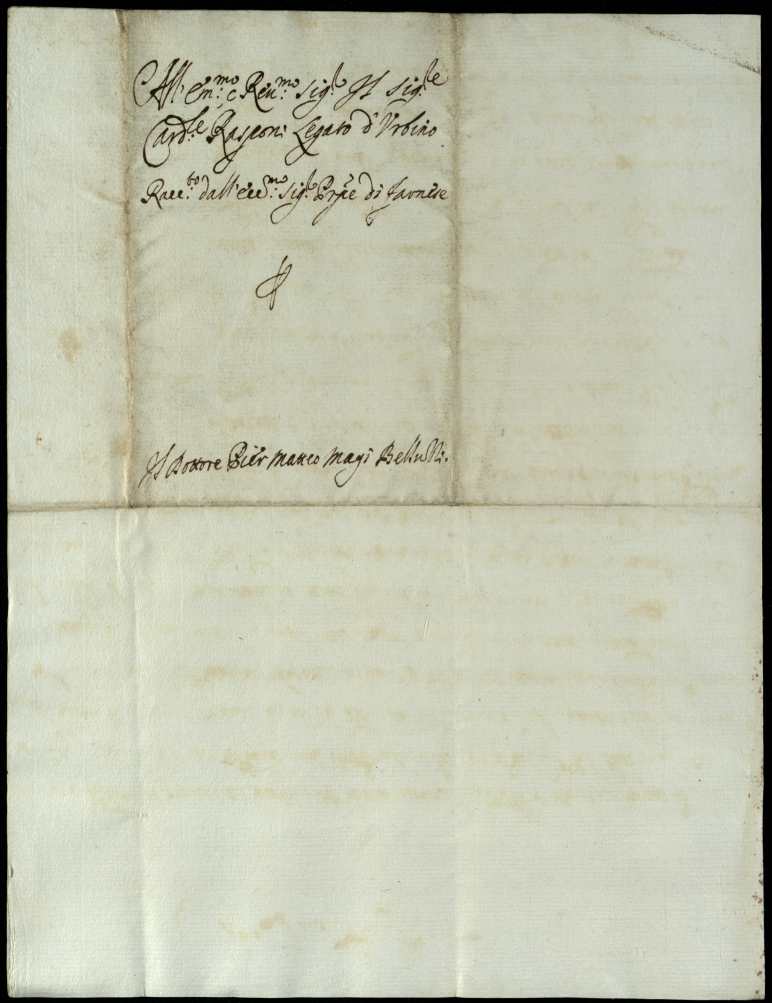 All' Em:mo e Reu:mo Sig:re Il Sig:re
Card:le Rasponi Legato d'Vrbino
Racc:to dall'ecc:mo Sig:r Prpē di
Il Dottore Pier Matteo Magi Belluzzi.